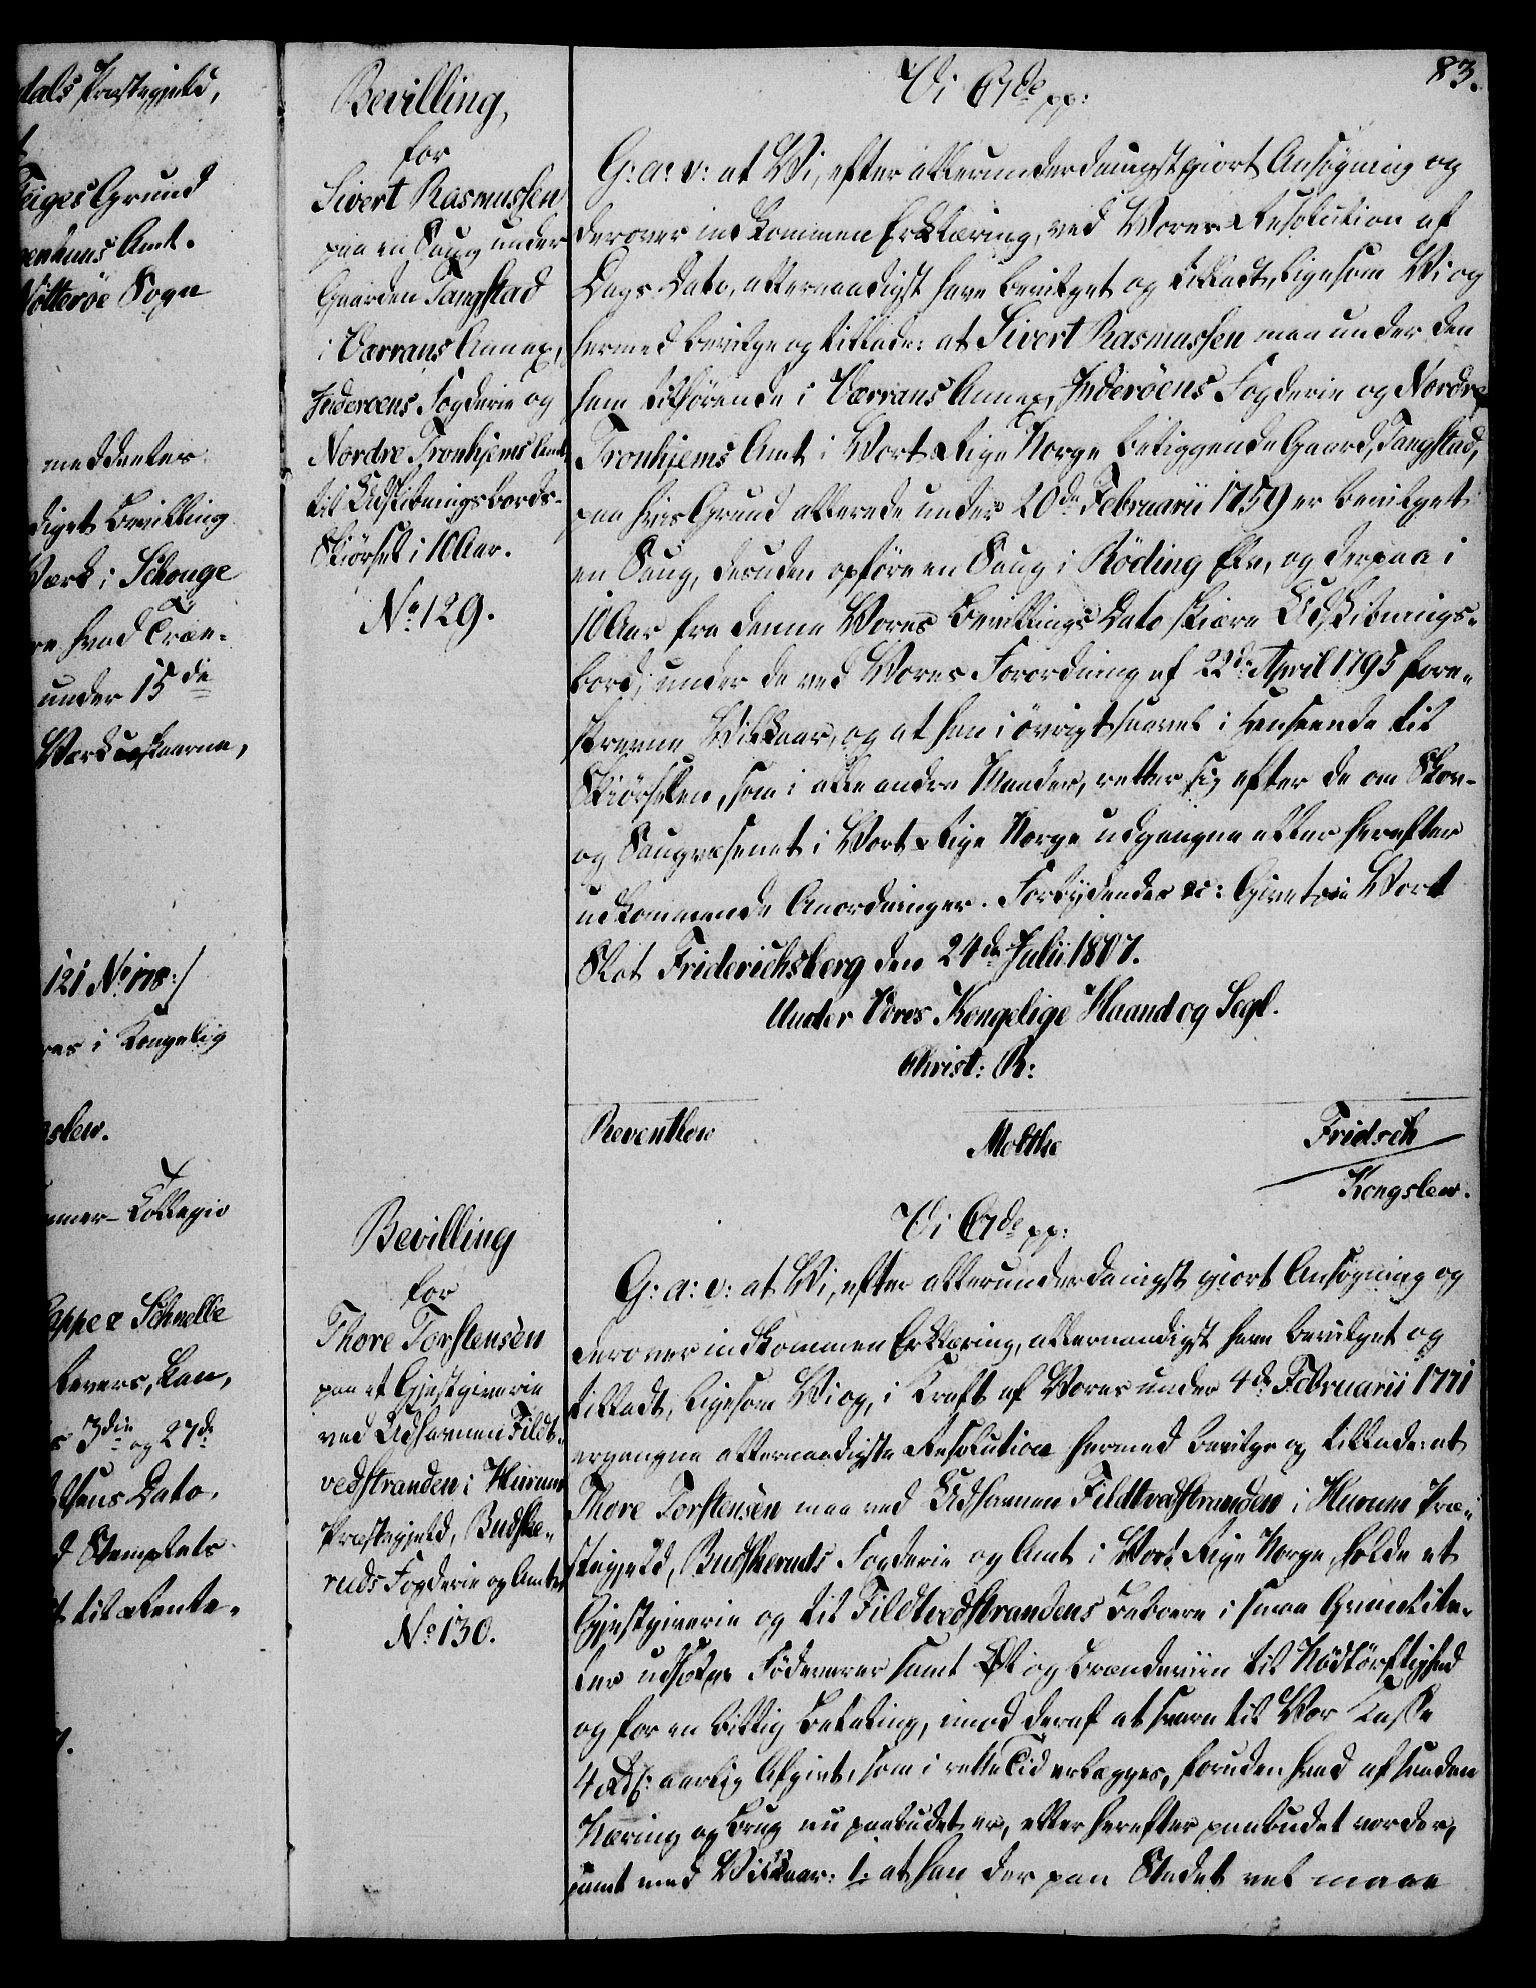 dals Præstegjeld,
Teiges Grund
genhuus Amt.
Nötteröe Sogn
meddeeles
diget Bevilling
Værk i Schouge
re hvad Træe-
under 15de
121 No 118:/
ras i Kongelig
slew.
mer-Collegio
Jappe & Schnelle
levers, kan,
3die og 27de
d Stemplets
til Rente-
Bevilling,
for
Sivert Rasmussen
paa en Saug under
Gaarden Tangstad
i Værrans Annex,
Inderoens Fogderie og
Nordre Tronhjems Amt,
til Udskibningsbords-
Skiörsel i 10 Aar.
No 129.
Bevilling
for
Thore Torstensen
paa et Gjestgiverie
ved Udhavnen Fildt-
vedstranden i Hurum
Præstegjeld, Budske-
ruds Fogderie og Amt.
No 130.
83.
Vi C 7de pp:
G: a: v: at Vi, efter allerunderdanigst giort Ansögning og
derover indkommen Erklæring, ved Vores Resolution af
Dags Dato, allernaadigst have bevilget og tilladt, ligesom Vi og
hermed bevilge og tillade: at Sivert Rasmussen maa under den
ham tilhörende i Værrans Annex, Inderöens Fogderie og Nordre
Tronhjems Amt i Vort Rige Norge beliggende Gaard, Tangstad,
paa hvis Grund allerede under 20de Februarii 1759 er bevilget
en Saug, desuden opföre en Saug i Röding Elv, og derpaa i
10 Aar fra denne Vores Bevillings Dato skiære Udskibnings-
bord, under de ved Vores Forordning af 22de April 1795 fore-
skrevne Vilkaar, og at han i övrigt saavel i Henseende til
Skiörselen, som i alle andre Maader, retter sig efter de om Skov-
og Saugvæsenet i Vort Rige Norge udgangne eller herefter
udkommende Anordninger. Forbydendes &c: Givet paa Vort
Slot Friderichsberg den 24de Julii 1807.
Under Vores Kongelige Haand og Segl.
Christ: R:
Reventlow Molthe Fridsch
Kongslew.
Vi C 7de pp:
G: a: v: at Vi, efter allerunderdanigst giort Ansögning og
derover indkommen Erklæring, allernaadigst have bevilget og
tilladt, ligesom Vi og, i Kraft af Vores under 4de Februarii 1771
ergangne allernaadigste Resolution hermed bevilge og tillade: at
Thore Torstensen maa ved Udhavnen Fildtvedstranden i Hurum Præ-
stegjeld, Budskeruds Fogderie og Amt i Vort Rige Norge, holde et
Gjestgiverie og til Fildtvedstrandens Beboere i smaa Qvantite-
ter udsælge Födevarer samt Öl og Brændeviin til Nödtörftighed
og for en billig Betaling, imod deraf at svare til Vor Casse
4 Rd: aarlig Afgivt, som i rette Tid erlægges, foruden hvad af saadan
Næring og Brug nu paabudet er, eller herefter paabudet vorder,
samt med Vilkaar: 1. at han der paa Stedet vel maae